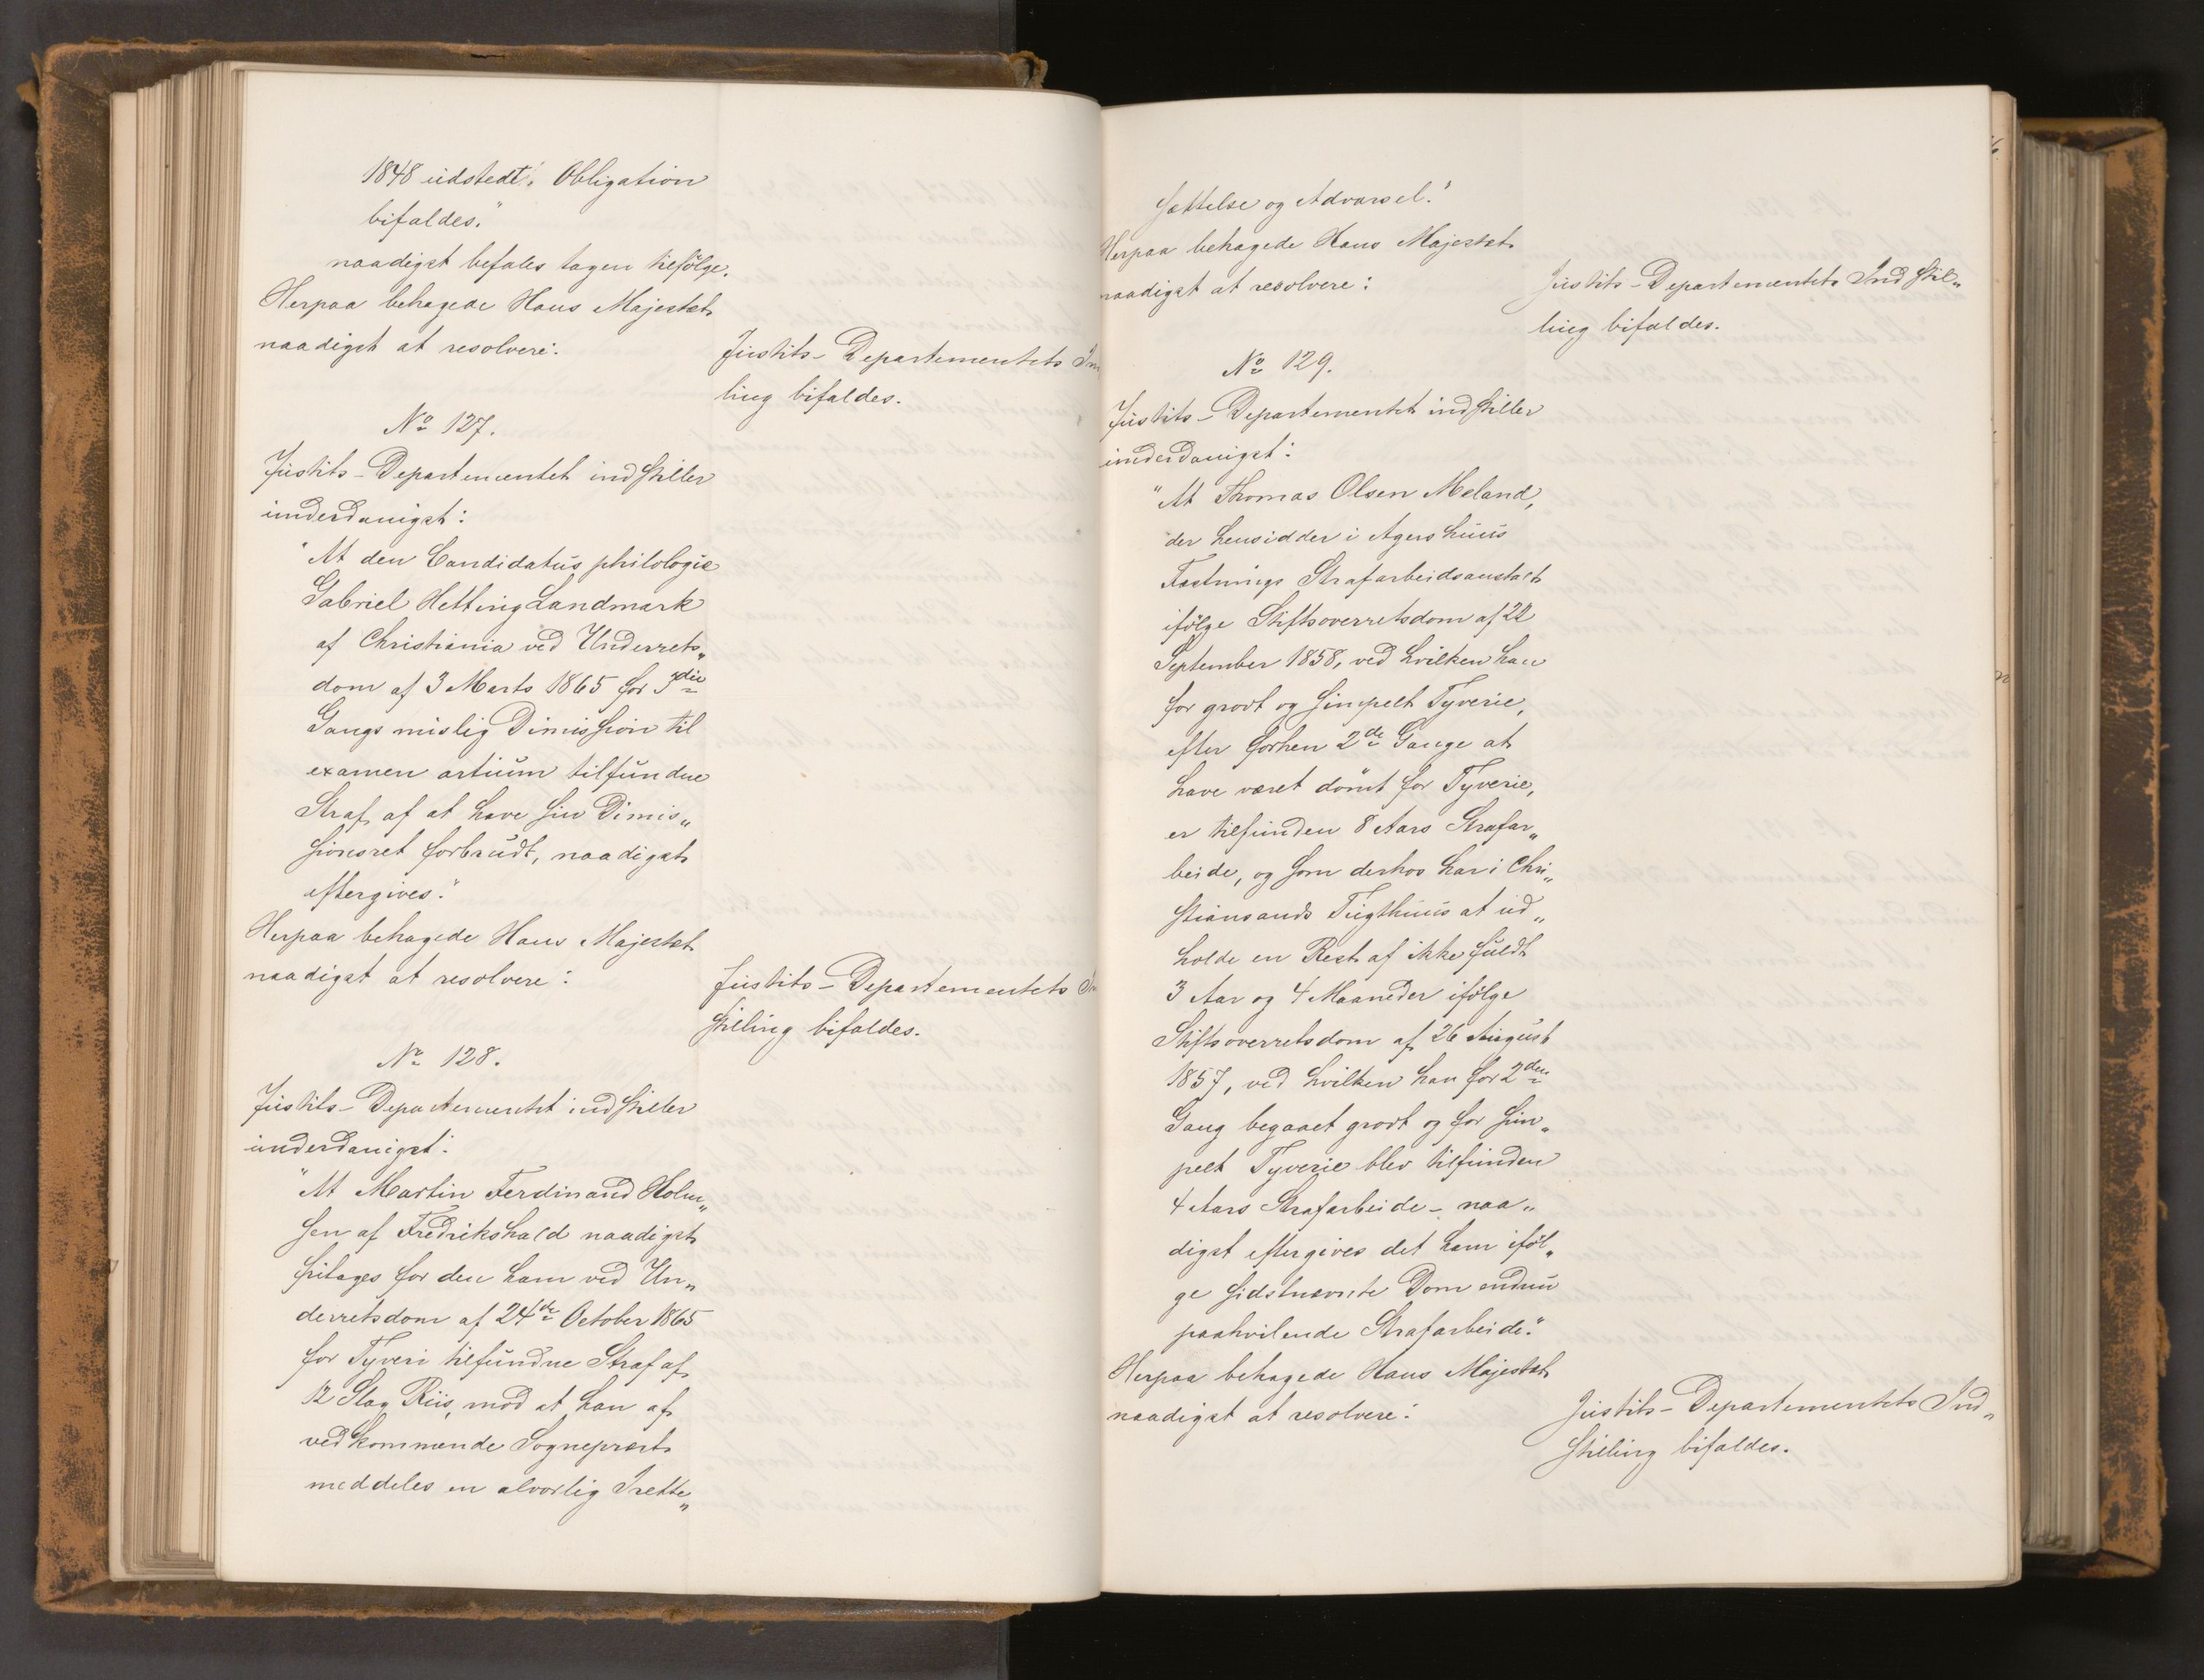 1848 udstedt, Obligation
bifaldes."
naadigst befales tagen tilfölge.
Herpaa behagede Hans Majestæt
naadigst at resolvere:
Justits-Departementets In
ling bifaldes.
No 127.
Justits-Departementet indstiller
underdanigst:
"At den Candidatus philologiæ
Gabriel Hetting Landmark
af Christiania ved Underrets„
dom af 3 Marts 1865 for 3die
Gangs mislig Dimission til
examen artium tilfundne
Straf af at have sin Dimis„
sionsret forbrudt, naadigst
eftergives."
Herpaa behagede Hans Majestæt
naadigst at resolvere:
Justits-Departementets In
stilling bifaldes.
No 128.
Justits-Departementet indstiller
underdanigst:
"At Martin Ferdinand Holm„
sen af Fredrikshald naadigst
fritages for den ham ved Un„
derretsdom af 24de October 1865
for Tyveri tilfundne Straf af
12 Slag Riis, mod at han af
vedkommende Sognepræst
meddeles en alvorlig Irette„
sættelse og Advarsel."
Herpaa behagede Hans Majestæt
naadigst at resolvere:
Justits-Departementets Indstil„
ling bifaldes.
No 129.
Justits-Departementet indstiller
underdanigst:
"At Thomas Olsen Meland,
der hensidder i Agershuus
Fæstnings Strafarbeidsanstalt
ifölge Stiftsoverretsdom af 22
September 1858, ved hvilken han
for grovt og simpelt Tyverie,
efter forhen 2de Gange at
have været dömt for Tyverie,
er tilfunden 8 Aars Strafar„
beide, og som derhos har i Chri„
stiansands Tugthuus at ud„
holde en Rest af ikke fuldt
3 Aar og 4 Maaneder ifölge
Stiftsoverretsdom af 26 August
1857, ved hvilken han for 2den
Gang begaaet grovt og for sim„
pelt Tyverie blev tilfunden
4 Aars Strafarbeide - naa„
digst eftergives det ham iföl„
ge sidstnævnte Dom endnu
paahvilende Strafarbeide."
Herpaa behagede Hans Majestæt
naadigst at resolvere:
Justits-Departementets Ind„
stilling bifaldes.